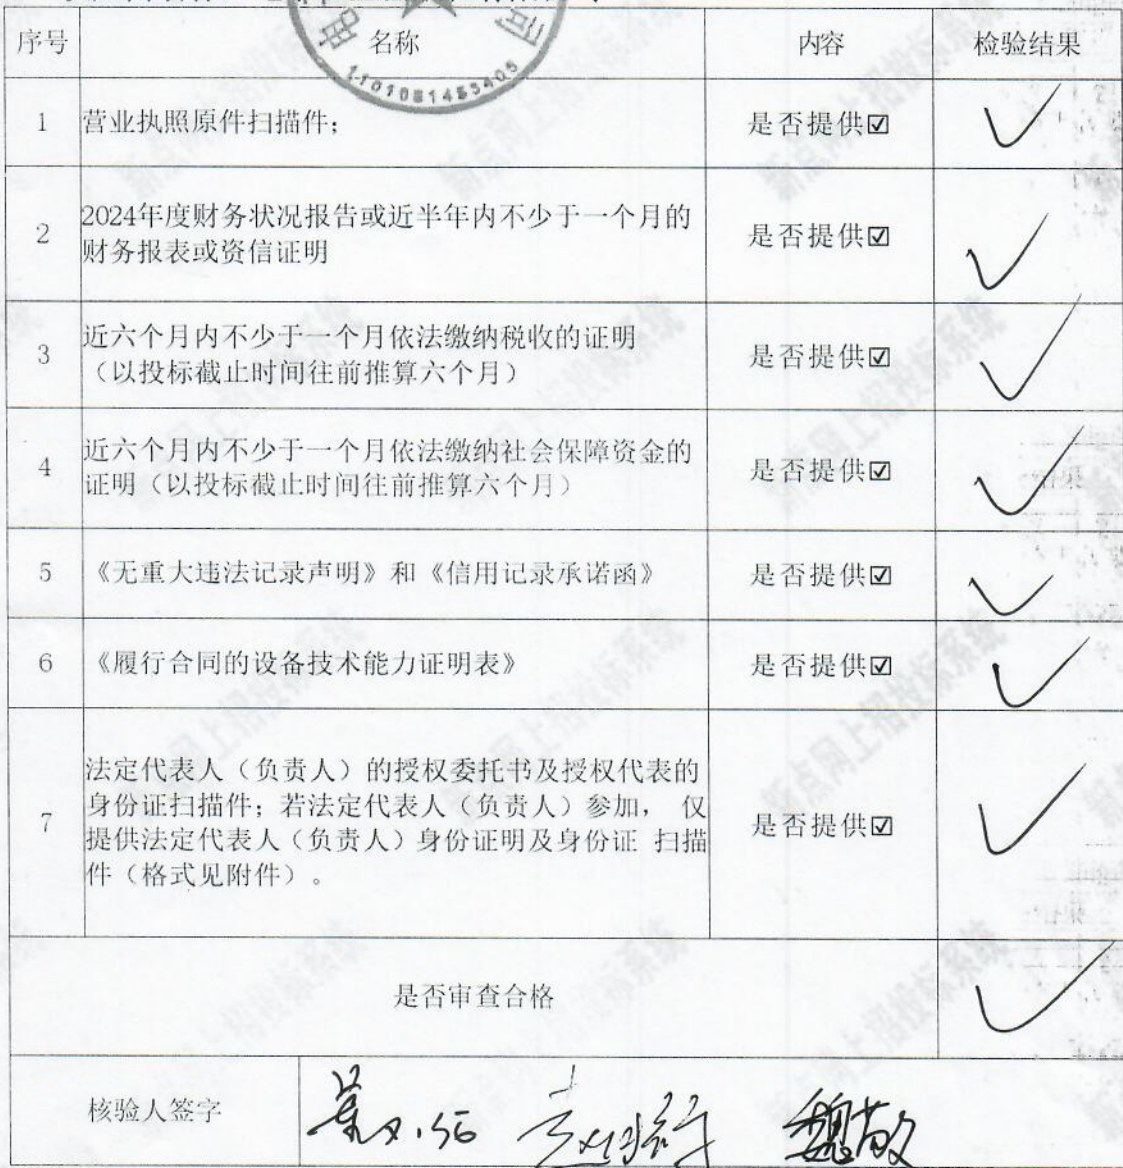 序号 名称 内容 检验结果
1101081453405
1 营业执照原件扫描件； 是否提供☑ ✓
2 2024年度财务状况报告或近半年内不少于一个月的
财务报表或资信证明 是否提供☑ ✓
3 近六个月内不少于一个月依法缴纳税收的证明
（以投标截止时间往前推算六个月） 是否提供☑ ✓
4 近六个月内不少于一个月依法缴纳社会保障资金的
证明（以投标截止时间往前推算六个月） 是否提供☑ ✓
5 《无重大违法记录声明》和《信用记录承诺函》 是否提供☑ ✓
6 《履行合同的设备技术能力证明表》 是否提供☑ ✓
7 法定代表人（负责人）的授权委托书及授权代表的
身份证扫描件；若法定代表人（负责人）参加， 仅
提供法定代表人（负责人）身份证明及身份证 扫描
件（格式见附件）。 是否提供☑ ✓
是否审查合格 ✓
核验人签字 魏敬
新点网上招投标系统